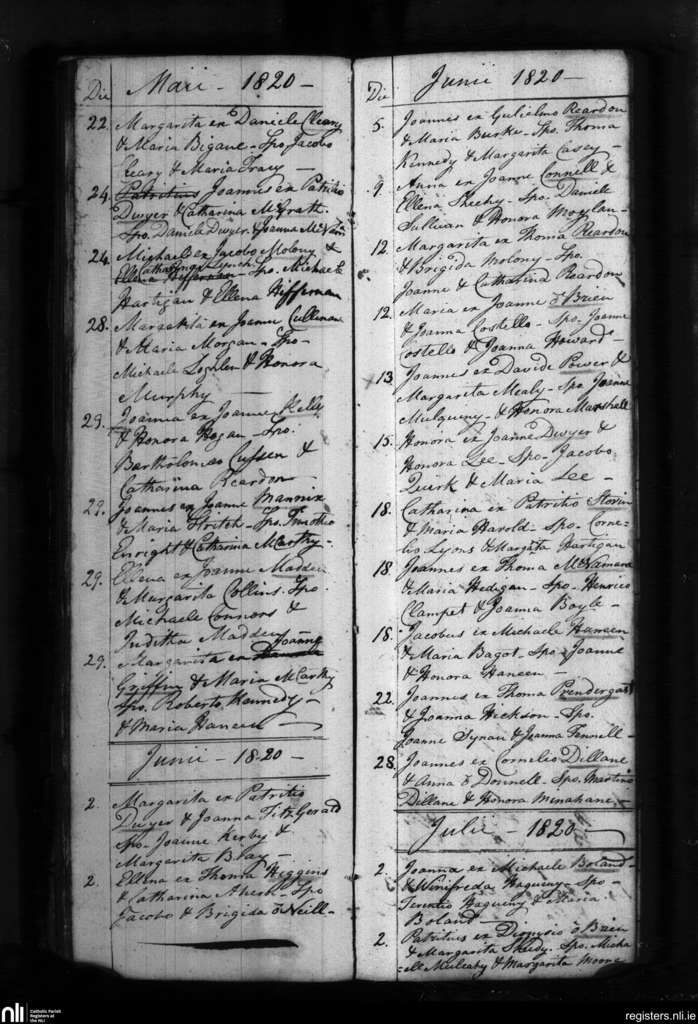 Die Maii - 1820 -
22. Margarita ex Daniele Cleary
& Maria Bigane - Spo. Jacobo
Cleary & Maria Tracy -
24. Patritius Joannes ex Patritio
Dwyer & Catharina McGrath.
Spo. Daniele Dwyer & Joanna
24. Michael ex Jacobo Molony &
Catharina Lynch
Ellena Heffernan - Spo. Michaele
Hartigan & Ellena Hiffernan
28. ex Joanne Cullenan
& Maria Morgan - Spo -
Michaele Loghlen & Honora
Murphy -
29. Joanna ex Joanne Kelly
& Honora Hogan - Spo.
Bartholomeo Cussen &
Catharina Reardon -
29. Joannes ex Joanne Mannix
& Maria Stritch - Spo. Timotheo
Enright & Catharina McCarthy -
29. Ellena ex Joanne Madden
& Margarita Collins. Spo.
Michaele Connors &
Juditha Madden
29. Margarita ex Joanne
Griffin & Maria McCarthy
Spo. Roberto Kennedy -
& Maria Haneen -
Junii - 1820 -
2. Margarita ex Patritio
Dwyer & Joanna FitzGerald
Spo. Joanne Kerby &
Margarita
2. Ellena ex Thoma Higgins
& Catharina Ahern - Spo
Jacobo & Brigida ō Neill -
Die Junii 1820 -
5. Joannes ex Gulielmo Reardon
& Maria Burke - Spo. Thoma
Kennedy & Margarita Casey -
9. Anna ex Joanne Connell &
Ellena Sheehy - Spo. Daniele
Sullivan & Honora Moylan -
12. Margarita ex Thoma Reardon
& Brigida Molony - Spo.
Joanne & Catharina Reardon
12. Maria ex Joanne ō Brien
& Joanna Costello - Spo. Joanne
Costello & Joanna Howard -
13. Joannes ex Davide Power &
Margarita Mealy - Spo Joanne
Mulqueny - & Honora Marshall
15. Honora ex Joanne Dwyer &
Honora Lee - Spo - Jacobo
Quirk & Maria Lee -
18. Catharina ex Patritio Storin
& Maria Harold - Spo - Corne-
lio Lyons & Margāta Hartigan
18. Joannes ex Thoma McNamara
& Maria Hedigan - Spo - Henrico
Clampet & Joanna Boyle -
18. Jacobus ex Michaele Haneen
& Maria Bagot - Spo Joanne
& Honora Haneen -
22. Joannes ex Thoma Prendergast
& Joanna Hickson - Spo.
Joanne Synan & Joanna Fennell -
28. Joannes ex Cornelio Dillane
& Anna ō Donnell - Spo. Martino
Dillane & Honora Minahane -
Julii - 1820 -
2. Joanna ex Michaele Boland -
& Winifreda Hagueny - Spo -
Terentio Hagueny & Maria
Boland -
2. Patritius ex Dionysio ō Brien
& Margarita Sheedy. Spo. Micha
=ele Mulcahy & Margarita Moone
nli Catholic Parish
Registers at
the NLI
registers.nli.ie